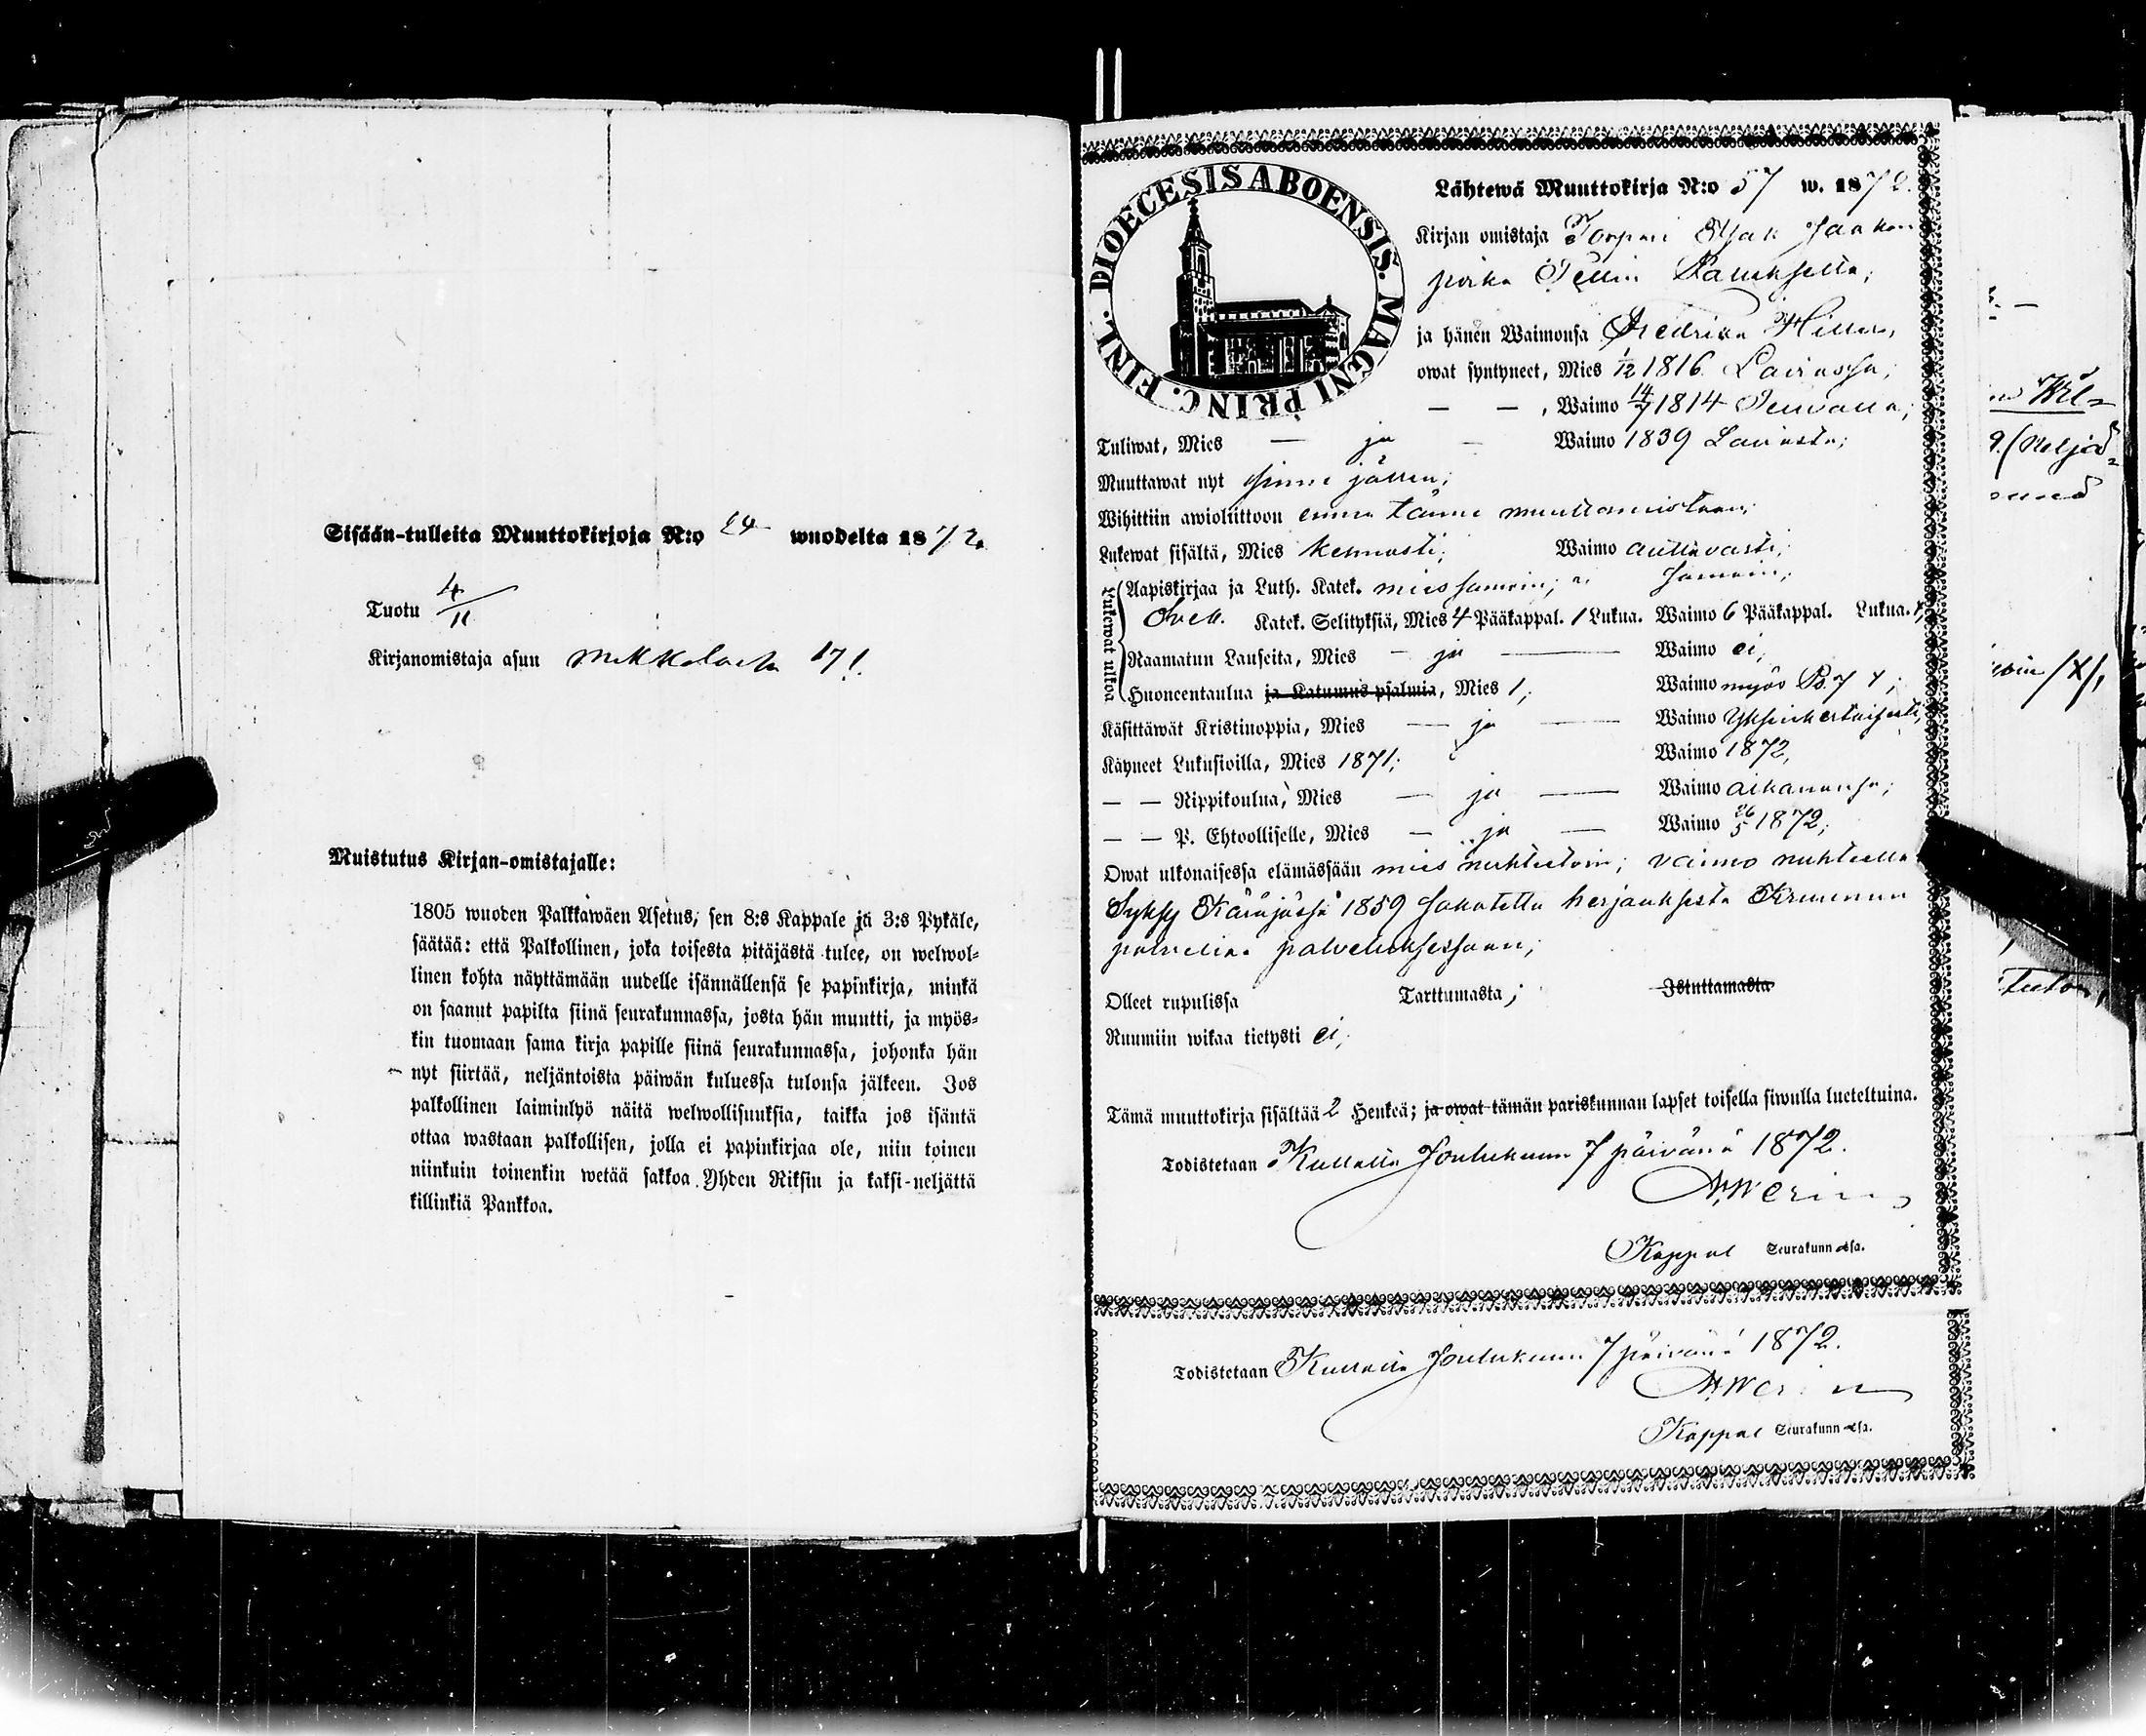 Sisään-tulleita Muuttokirjoja N:o 24 wuodelta 1872.
Tuotu 4/11
Kirjanomistaja asuu
Muistutus Kirjan-omistajalle:
1805 wuoden Palkkawäen Asetus, sen 8:s Kappale ja 3:s Pykäle,
säätää: että Palkollinen, joka toisesta pitäjästä tulee, on welwol=
linen kohta näyttämään uudelle isännällensä se papinkirja, minkä
on saanut papilta siinä seurakunnassa, josta hän muutti, ja myös=
kin tuomaan sama kirja papille siinä seurakunnassa, johonka hän
nyt siirtää, neljäntoista päiwän kuluessa tulonsa jälkeen. Jos
palkollinen laiminlyö näitä welwollisuuksia, taikka jos isäntä
ottaa wastaan palkollisen, jolla ei papinkirjaa ole, niin toinen
niinkuin toinenkin wetää sakkoa Yhden Riksin ja kaksi-neljättä
killinkiä Pankkoa.
DIOECESIS ABOENSIS. MAGNI PRINC. FINL.
Lähtewä Muuttokirja N:o 57 w. 1872.
Kirjan omistaja Torpari Isak Jaakon
poika
ja hänen Waimonsa Fredrika
owat syntyneet, Mies 1/12 1816 Laviassa;
— — , Waimo 14/7 1814
Tuliwat, Mies — ja — Waimo 1839 Laviasta;
Muuttawat nyt sinne jällen;
Wihittiin awioliittoon ennen tänne muuttamistaan;
Lukewat sisältä, Mies kelvosti; Waimo auttavasti;
Lukewat ulkoa
Aapiskirjaa ja Luth. Katek. mies samoin; samoin;
Katek. Selityksiä, Mies 4 Pääkappal. 1 Lukua. Waimo 6 Pääkappal. Lukua.
Raamatun Lauseita, Mies — ja — Waimo ei;
Huoneentaulua ja Katumus psalmia, Mies 1; Waimo myös Ps. 7
Käsittäwät Kristinoppia, Mies — ja — Waimo Yksinkertaisesti;
Käyneet Lukusioilla, Mies 1871; Waimo 1872,
— — Rippikoulua, Mies — ja — Waimo aikananse;
— — P. Ehtoolliselle, Mies — ja — Waimo 26/5 1872;
Owat ulkonaisessa elämässään mies nuhteetoin; vaimo
Syksy Käräjässä 1859 sakotettu herjauksesta Kruunun
palvelia palveluksessaan;
Olleet rupulissa Tarttumasta; Istuttamasta
Ruumiin wikaa tietysti ei;
Tämä muuttokirja sisältää 2 Henkeä; ja owat tämän pariskunnan lapset toisella siwulla lueteltuina.
Todistetaan Kullalla Joulukuun 7 päivänä 1872.
Kappal Seurakunnassa.
Todistetaan Kullalla Joulukuun 7 päivänä 1872.
Kappal Seurakunnassa.